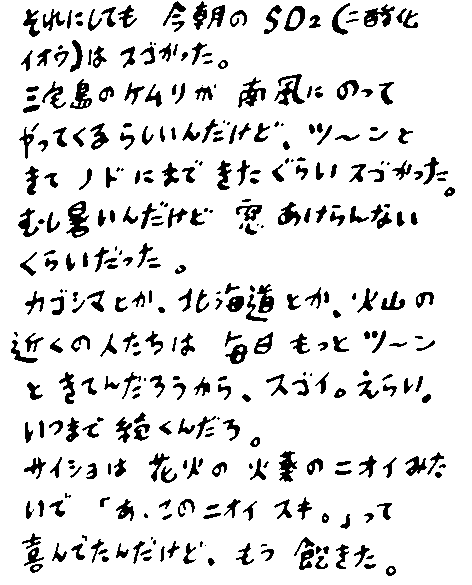 それにしても 今朝の SO2 (二酸化
イオウ)は スゴかった。
三宅島のケムリが 南風に のって
やってくるらしいんだけど、ツ〜ンと
きて ノドにまで きたぐらい スゴかった。
むし暑いんだけど 窓 あけらんない
くらいだった。
カゴシマとか、北海道とか、火山の
近くの人たちは 毎日 もっと ツ〜ン
と きてんだろうから、スゴイ。えらい。
いつまで 続くんだろ。
サイショは 花火の 火薬のニオイみた
いで 「あ、このニオイ スキ。」って
喜んでたんだけど、もう 飽きた。